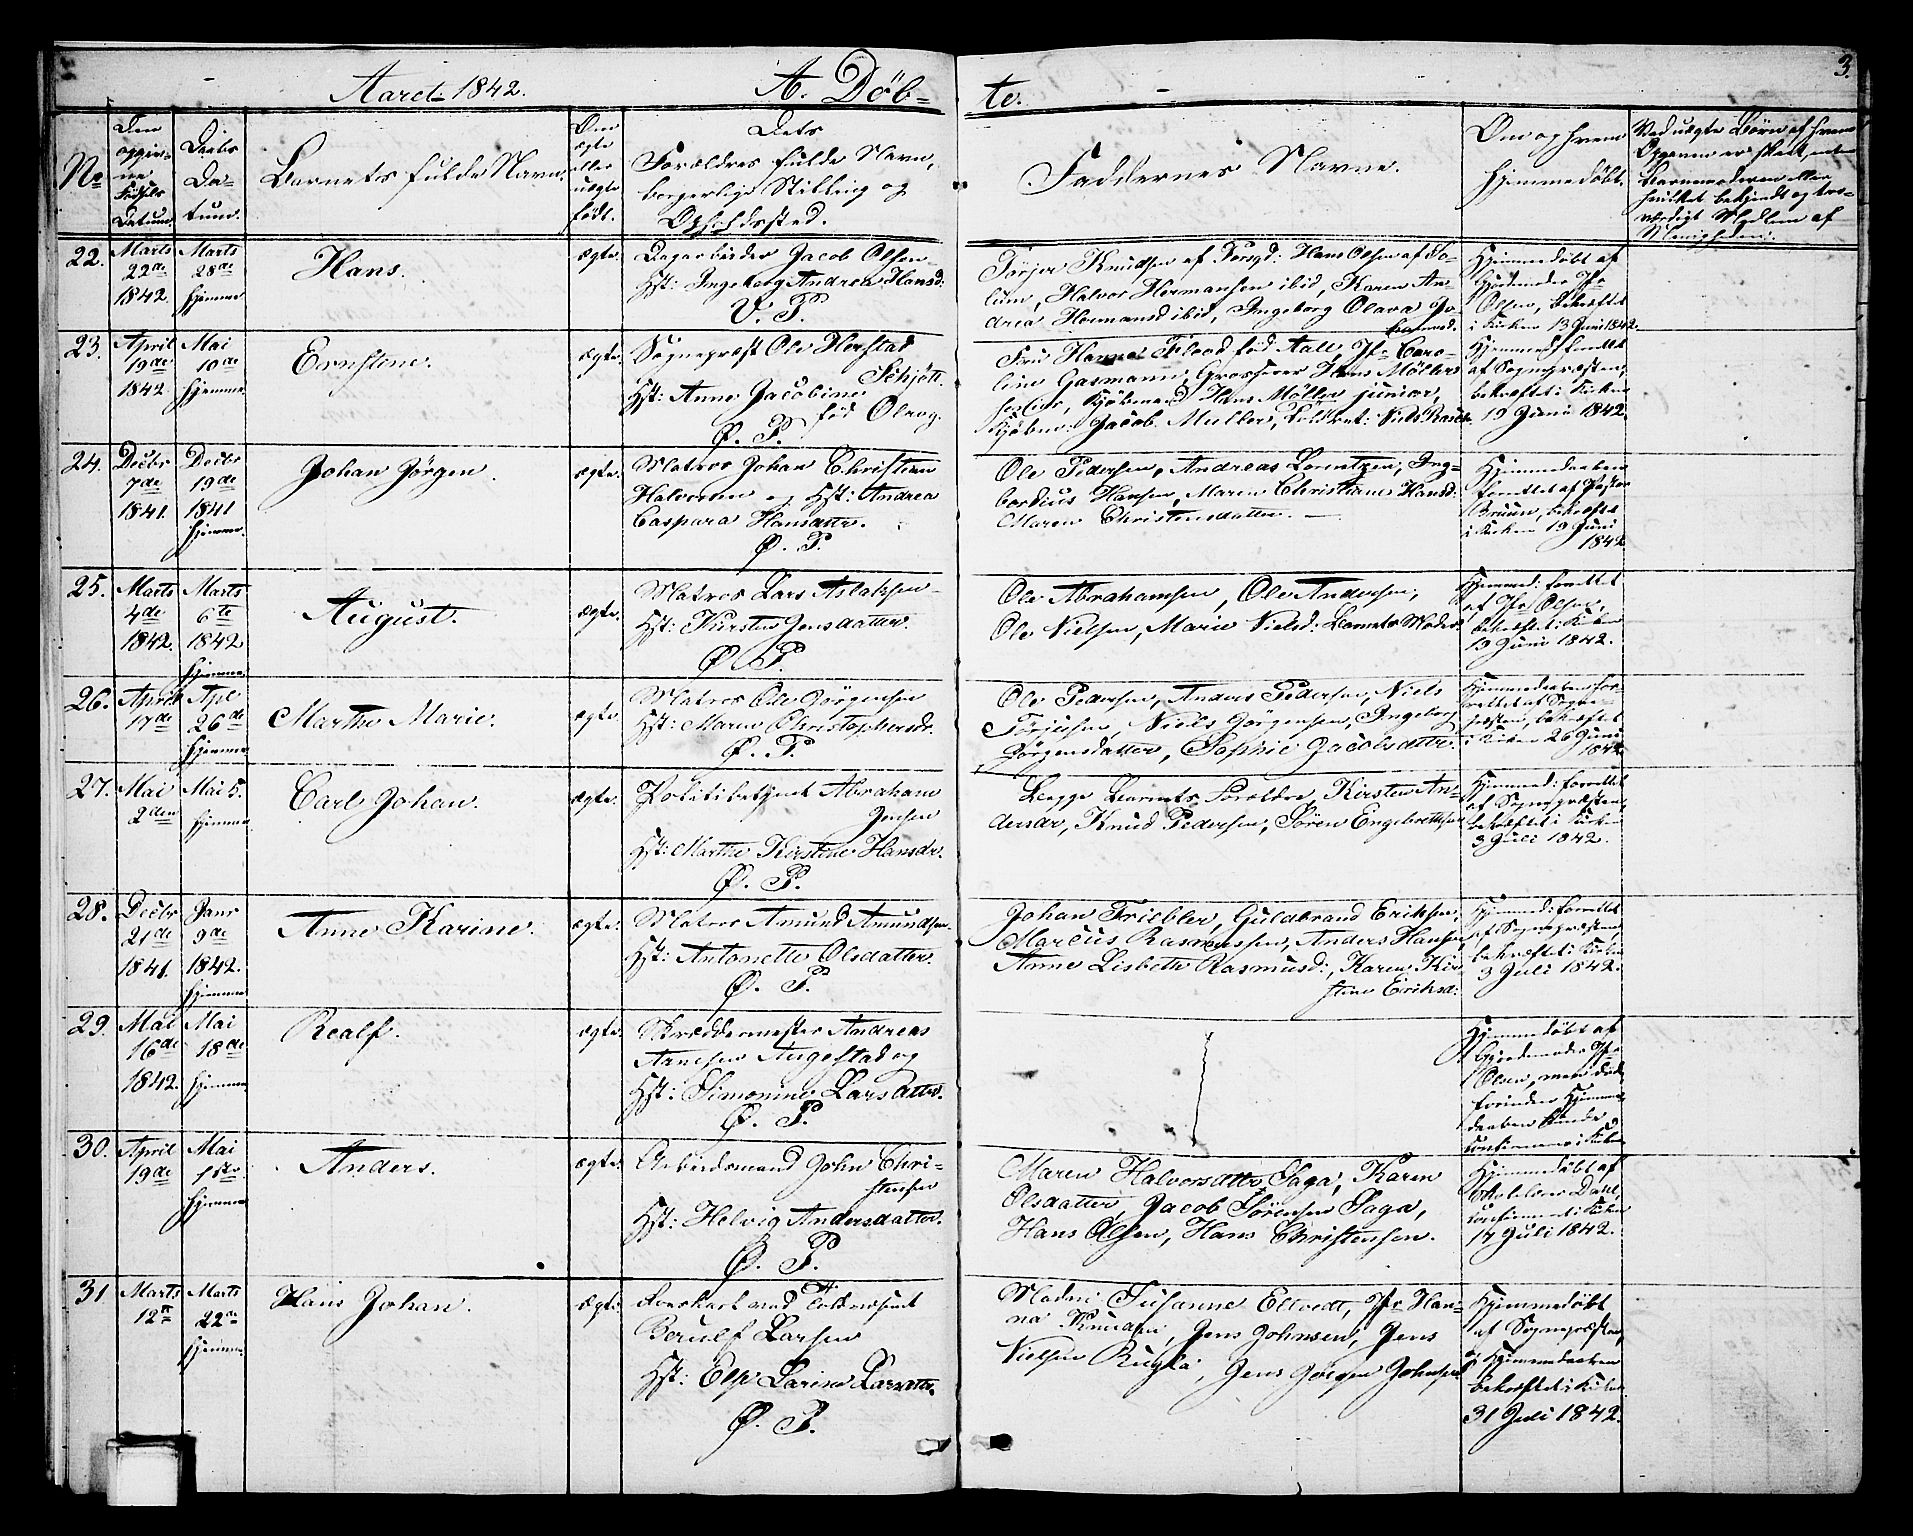 Aaret 1842. A. Döb- te. 3.
No
Den opgivne Födsels Datum.
Daabs Datum.
Barnets fulde Navn.
Om ægte eller uægte födt.
Dets Forældres fulde Navn, borgerlige Stilling og Opholdssted.
Faddernes Navne.
Om og af hvem hjemmedöbt.
22.
Marts
22de
1842.
Marts
28de
hjemme
Hans.
ægte.
Dagarbeider Jacob Olsen
Hst: Ingeborg Andrea Hansd:
V. P.
Törjer Knudsen af Porsgd: Hans Olsen af So-
lum, Halvor Hermansen ibid, Karen An-
drea Hermansd ibid, Ingeborg Olava Jo-
hannesd.
Hjemmedöbt af
Gjordemoder Jfr
Olsen, bekræftet
i Kirken 13 Juni 1842.
23.
April
19de
1842
Mai
10de
hjemme.
Ernstine.
ægte.
Sognepræst Ole Herstad
Schjött.
Hst: Anne Jacobine
föd Olrog.
Ø. P.
Fru Hanna Flood föd Aall, Jfr Caro-
line Gasmann, Grosserer Hans Möller
Kjöbmand Hans Möller junior,
Kjöbm: Jacob Muller,
Hjemmed: forrettet
af Sognepræsten,
bekræftet i Kirken
19 Juni 1842.
24.
Decbr
7de
1841.
Decbr
19de
1841
hjemme.
Johan Jörgen.
ægte.
Matros Johan Christian
Halvorsen og Hst: Andrea
Caspara Hansdatter.
Ø. P.
Ole Pedersen, Andreas Lorentzen, Ing-
bordius Hansen, Maren Christiane Hansd:
Maren Christensdatter.
Hjemmedaaben
forrettet af Pastor
Bruun, bekræftet
i Kirken 19 Juni
1842
25.
Marts
4de
1842.
Marts
6te
1842
hjemme.
August.
ægte.
Matros Lars Aslaksen
Hst: Kirsten Jensdatter.
Ø P.
Ole Abrahamsen, Ole Andersen,
Ole Nielsen, Marie Nielsd: Barnets Moder.
Hjemmed: forrettet
af Jfr Olsen,
bekræftet i Kirken
19 Juni 1842.
26.
April
17de
Apl
26de
hjemme.
Marthe Marie.
ægte.
Matros Ole Jörgensen
Hst: Maren Christophersdr.
Ø. P.
Ole Pedersen, Anders Pedersen, Niels
Törjusen, Niels Jörgensen, Ingeborg
Jörgensdatter, Sophie Jacobsdatter.
Hjemmedaaben for-
rettet af Sogne-
præsten, bekræftet
i Kirken 26 Juni
1842
27.
Mai
2den
Mai 5.
hjemme.
Carl Johan.
ægte.
Politibetjent Abraham
Jensen
Hst: Marthe Kirstine Hansdr.
Ø. P.
Begge Barnets Forældre, Kirsten An-
dersdr, Knud Pedersen, Sören Engebrethsen
Hjemmed: forrettet
af Sognepræsten,
bekræftet i Kirken
3 Juli 1842.
28.
Decbr
21de
1841.
Janr
9de
1842.
hjemme
Anne Karine.
ægte.
Matros Amund Amundsen.
Hst: Antonette Olsdatter.
Ø. P.
Johan Triebler, Guldbrand Eriksen,
Marcus Rasmussen, Anders Hansen,
Anne Lisbeth Rasmusd:, Karen Kir-
stine Eriksd:
Hjemmed: forrettet
af Sognepræsten
bekræftet i Kirken
3 Juli 1842.
29.
Mai
16de
1842.
Mai
18de
hjemme
Realf.
ægte.
Skreddermester Andreas
Arnesen Augestad og
Hst: Simonine Larsdatter.
Ø. P.
Hjemmedöbt af
Gjordemoder Jfr
Olsen, men döde
forinden Hjemme-
daaben kunde
confirmeres i Kirken
30.
April
19de
Mai
1ste
hjemme
Anders.
ægte.
Arbeidsmand John Chri-
stensen
Hst: Helvig Andersdatter.
Ø. P.
Maren Halvorsdatter Saga, Karen
Olsdatter, Jacob Sörensen Saga,
Hans Olsen, Hans Christensen.
Hjemmedöbt af
Skolelærer Dahl,
confirmeret i Kirken
17 Juli 1842.
31
Marts
12te
Marts
22de
hjemme
Hans Johan.
ægte.
Berulf Larsen
Hst: Else Larine Larsdatter.
Ø. P.
Madam Susanne Eltvedt, Jfr Han-
na Knudsen, Jens Johnsen, Jens
Nielsen Rugla, Jens Jörgen Johnsen
Hjemmedöbt
af Sognepræsten,
og Hjemmedaaben
bekræftet i Kirken
31 Juli 1842.